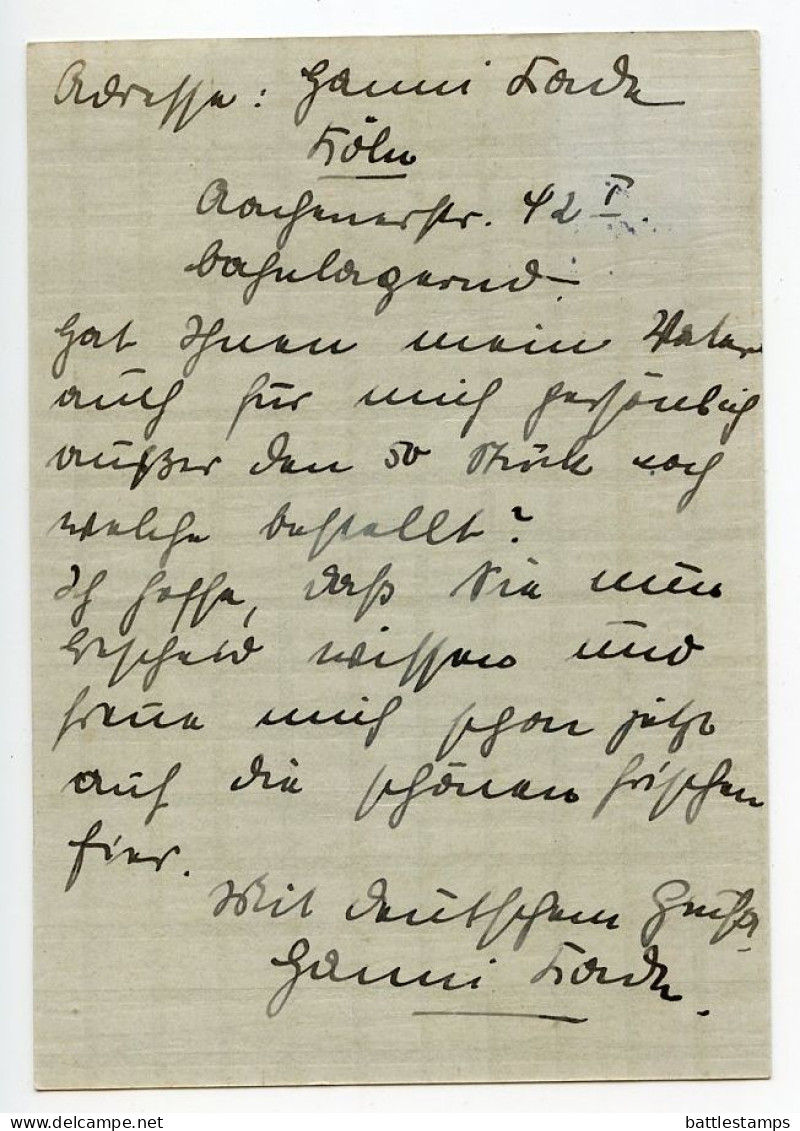 Adresse: Hanni
Köln
Aachenerstr. 42 I.
bahnlagernd.
Hat Ihnen mein Vater
auch für mich persönlich
außer den 50 Stück noch
welche bestellt?
Ich hoffe, daß Sie nun
Bescheid wissen und
freue mich schon jetzt
auf die schönen frischen
Eier.
Mit deutschem Gruß
Hanni
battlestamps